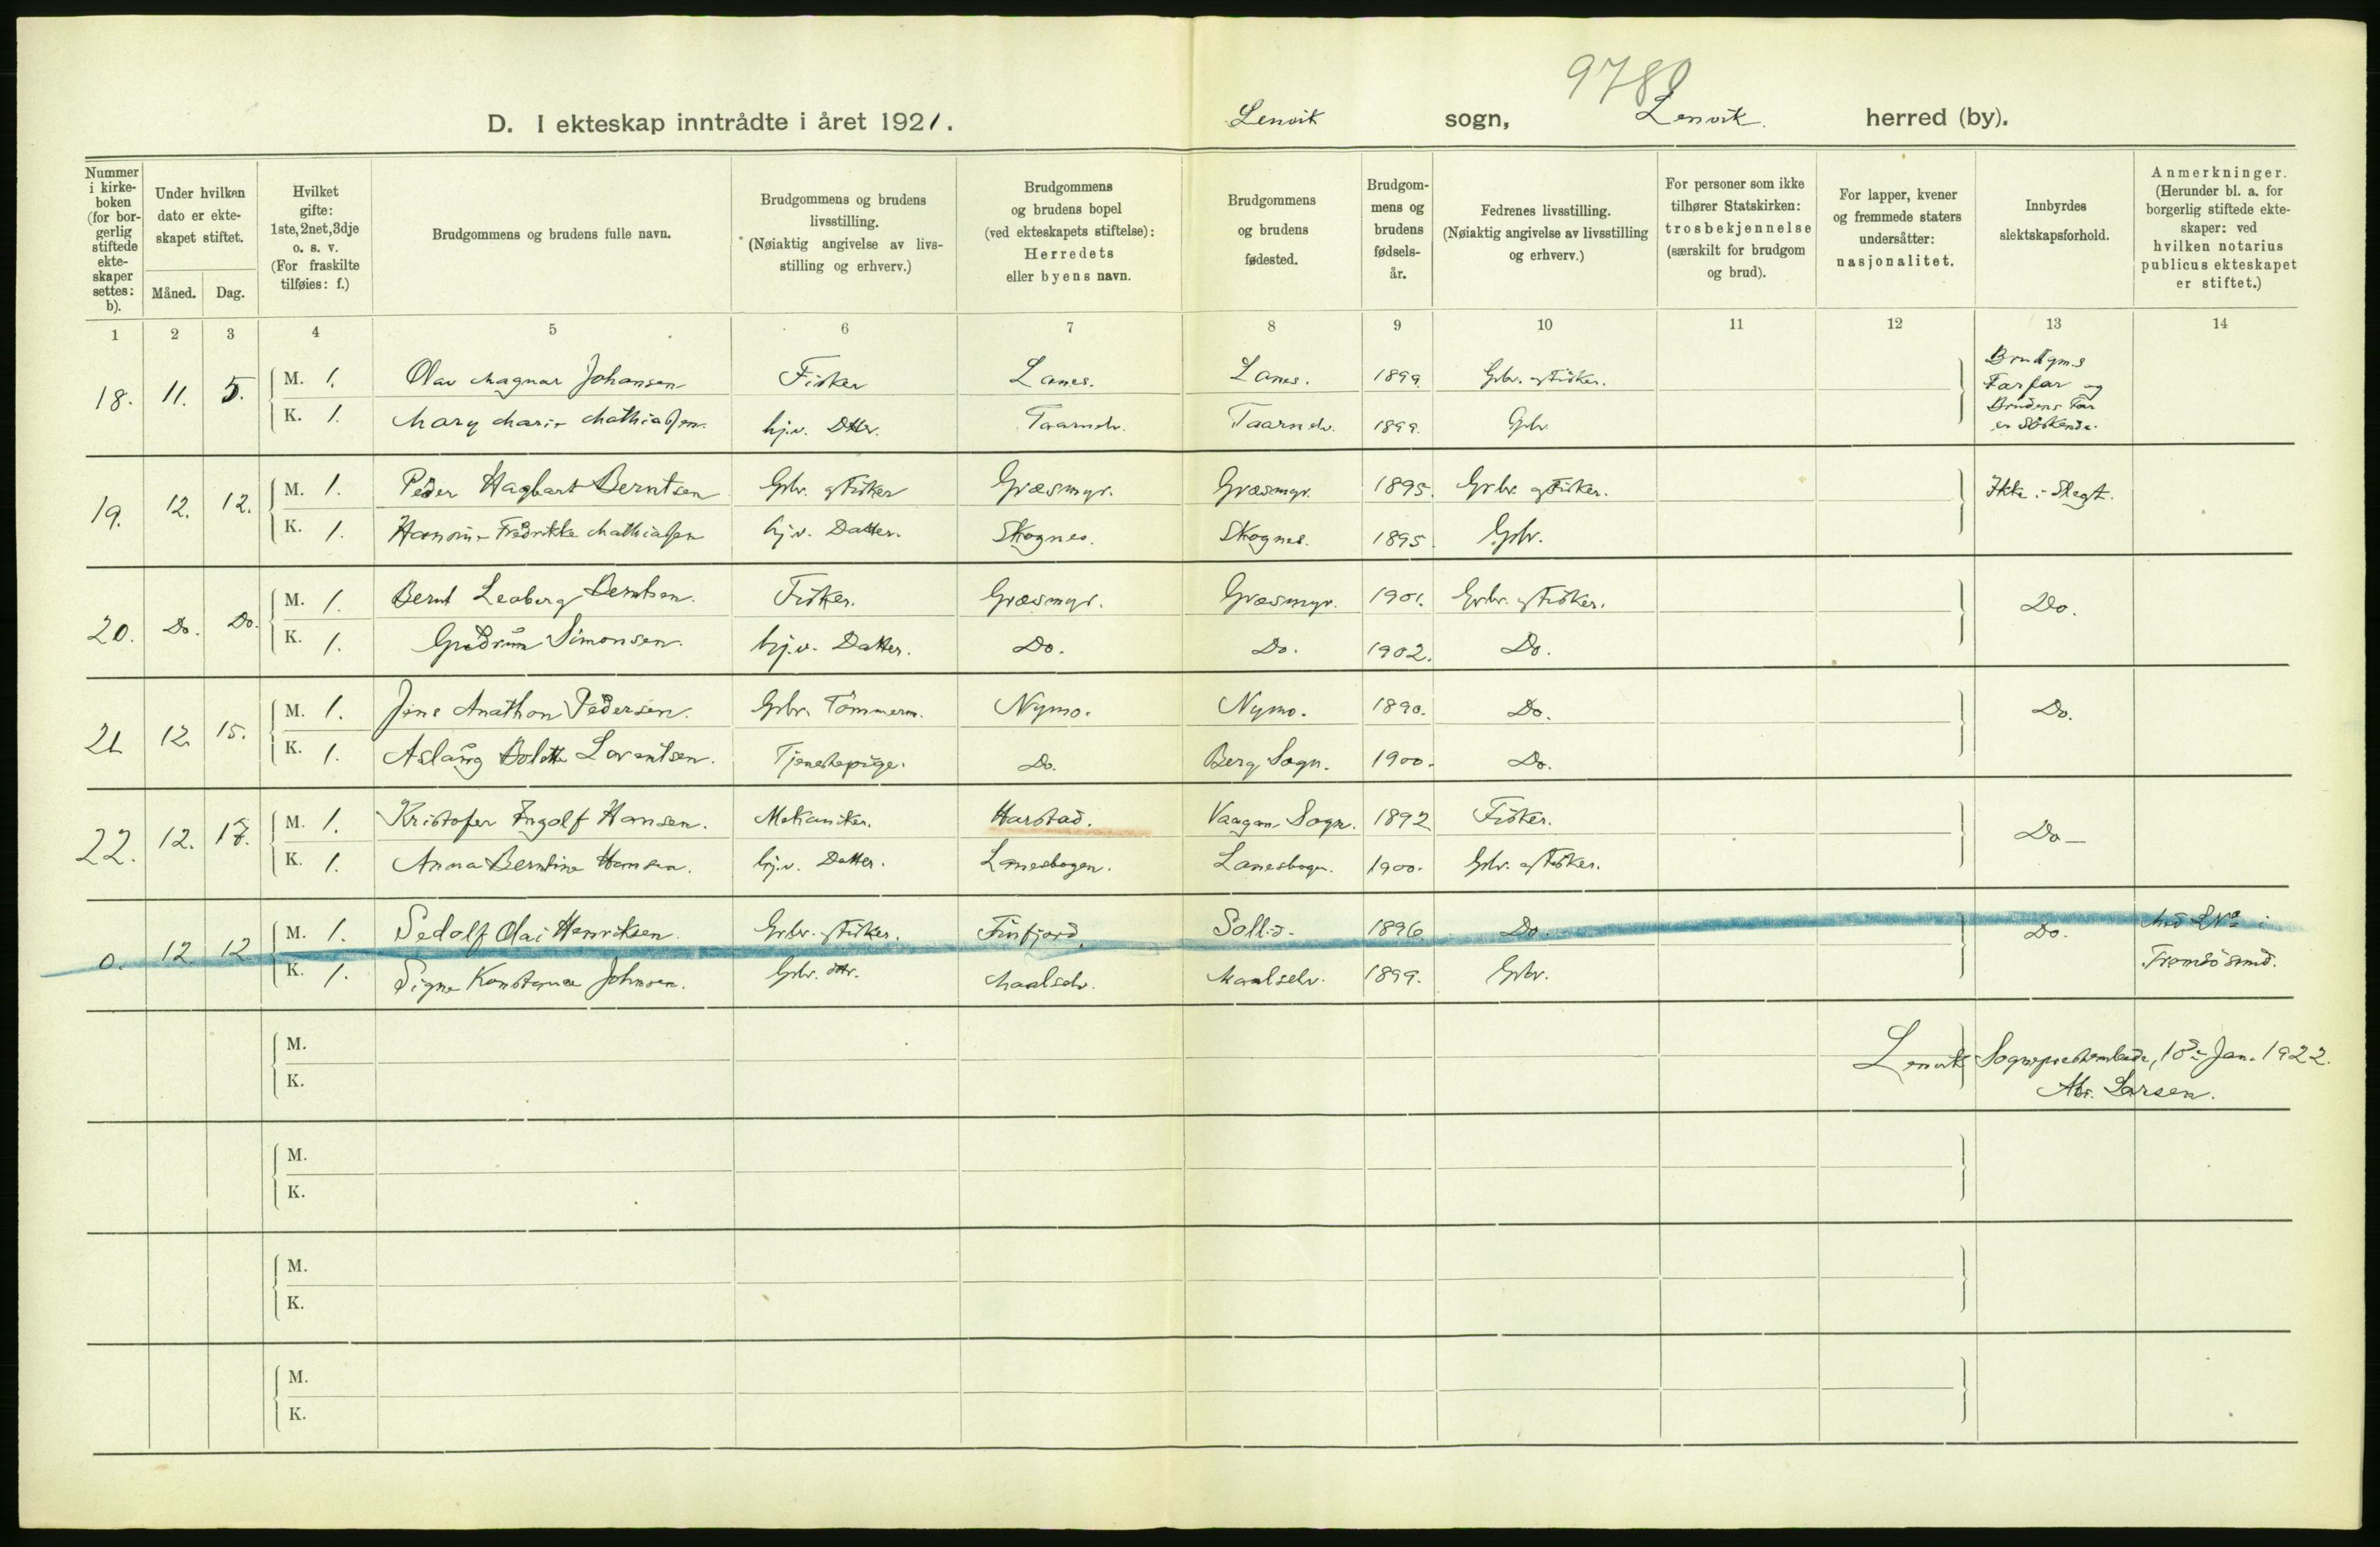 9780
D. I ekteskap inntrådte i året 1921. Lenvik sogn, Lenvik herred (by).
Nummer i kirke- boken (for bor- gerlig stiftede ekte- skaper settes: b).
Under hvilken dato er ekte- skapet stiftet.
Måned. Dag.
Hvilket gifte: 1ste, 2net, 3dje o. s. v. (For fraskilte tilføies: f.)
Brudgommens og brudens fulle navn.
Brudgommens og brudens livsstilling. (Nøiaktig angivelse av livs- stilling og erhverv.)
Brudgommens og brudens bopel (ved ekteskapets stiftelse): Herredets eller byens navn.
Brudgommens og brudens fødested.
Brudgom- mens og brudens fødsels- år.
Fedrenes livsstilling. (Nøiaktig angivelse av livsstilling og erhverv.)
For personer som ikke tilhører Statskirken: trosbekjennelse (særskilt for brudgom og brud).
For lapper, kvener og fremmede staters undersåtter: nasjonalitet.
Innbyrdes slektskapsforhold.
Anmerkninger. (Herunder bl. a. for borgerlig stiftede ekte- skaper: ved hvilken notarius publicus ekteskapet er stiftet.)
1 2 3 4 5 6 7 8 9 10 11 12 13 14
18. 11. 5. M. 1. Olav Magnar Johansen Fisker Lanes. Lanes. 1899. Gbr. og Fisker. Brudgms Farfar og Brudens Far er Söskende.
K. 1. Mary Marie Mathiassen. hj.v. Dtter. Taarnelv. Taarnelv. 1899. Gbr.
19. 12. 12. M. 1. Peder Hagbart Berntsen Gbr. og Fisker Græsmyr. Græsmyr. 1895. Gbr. og Fisker. Ikke i Slegt.
K. 1. Fredrikke Mathiassen hj.v. Datter. Skognes. Skognes. 1895. Gbr.
20. Do. Do. M. 1. Bernt Leaberg Berntsen. Fisker. Græsmyr. Græsmyr. 1901. Gbr. og Fisker. Do.
K. 1. Gudrun Simonsen. hj.v. Datter. Do. Do. 1902. Do.
21 12. 15. M. 1. Jens Anathon Pedersen. Gbr. Tömmerm. Nymo. Nymo. 1890. Do. Do.
K. 1. Aslaug Bolette Lorentsen. Tjenestepige. Do. Berg Sogn. 1900. Do.
22. 12. 17. M. 1. Kristofer Ingolf Hansen. Mekaniker. Harstad. Vaagan Sogn. 1892 Fisker. Do —
K. 1. Anna Berntine Hansen. hj.v. Datter. Lanesbogen. Lanesbogn. 1900. Gbr. og Fisker.
0. 12. 12 M. 1. Sedolf Olai Henriksen. Gbr. og Fisker. Finfjord. Sollid. 1896. Do. Do. i
K. 1. Signe Konstanse Johnsen. Gbr. dtr. Maalselv. Maalselv. 1899. Gbr. Tromsösund.
M. Lenvik Sogneprestembede, 18de Jan. 1922.
K. Larsen.
M.
K.
M.
K.
M.
K.